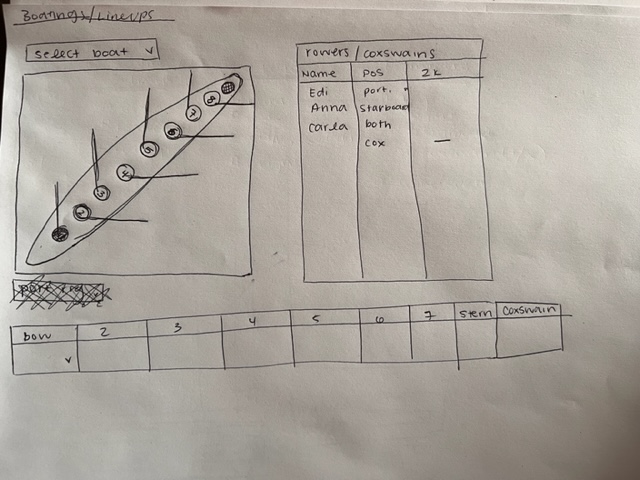 Boatings/Lineups
select boat v
rowers/coxswains
Name pos 2k
Edi port.
Anna Starboard
Carla both
cox —
8
7
6
5
4
3
2
bow 2 3 4 5 6 7 stern coxswain
v